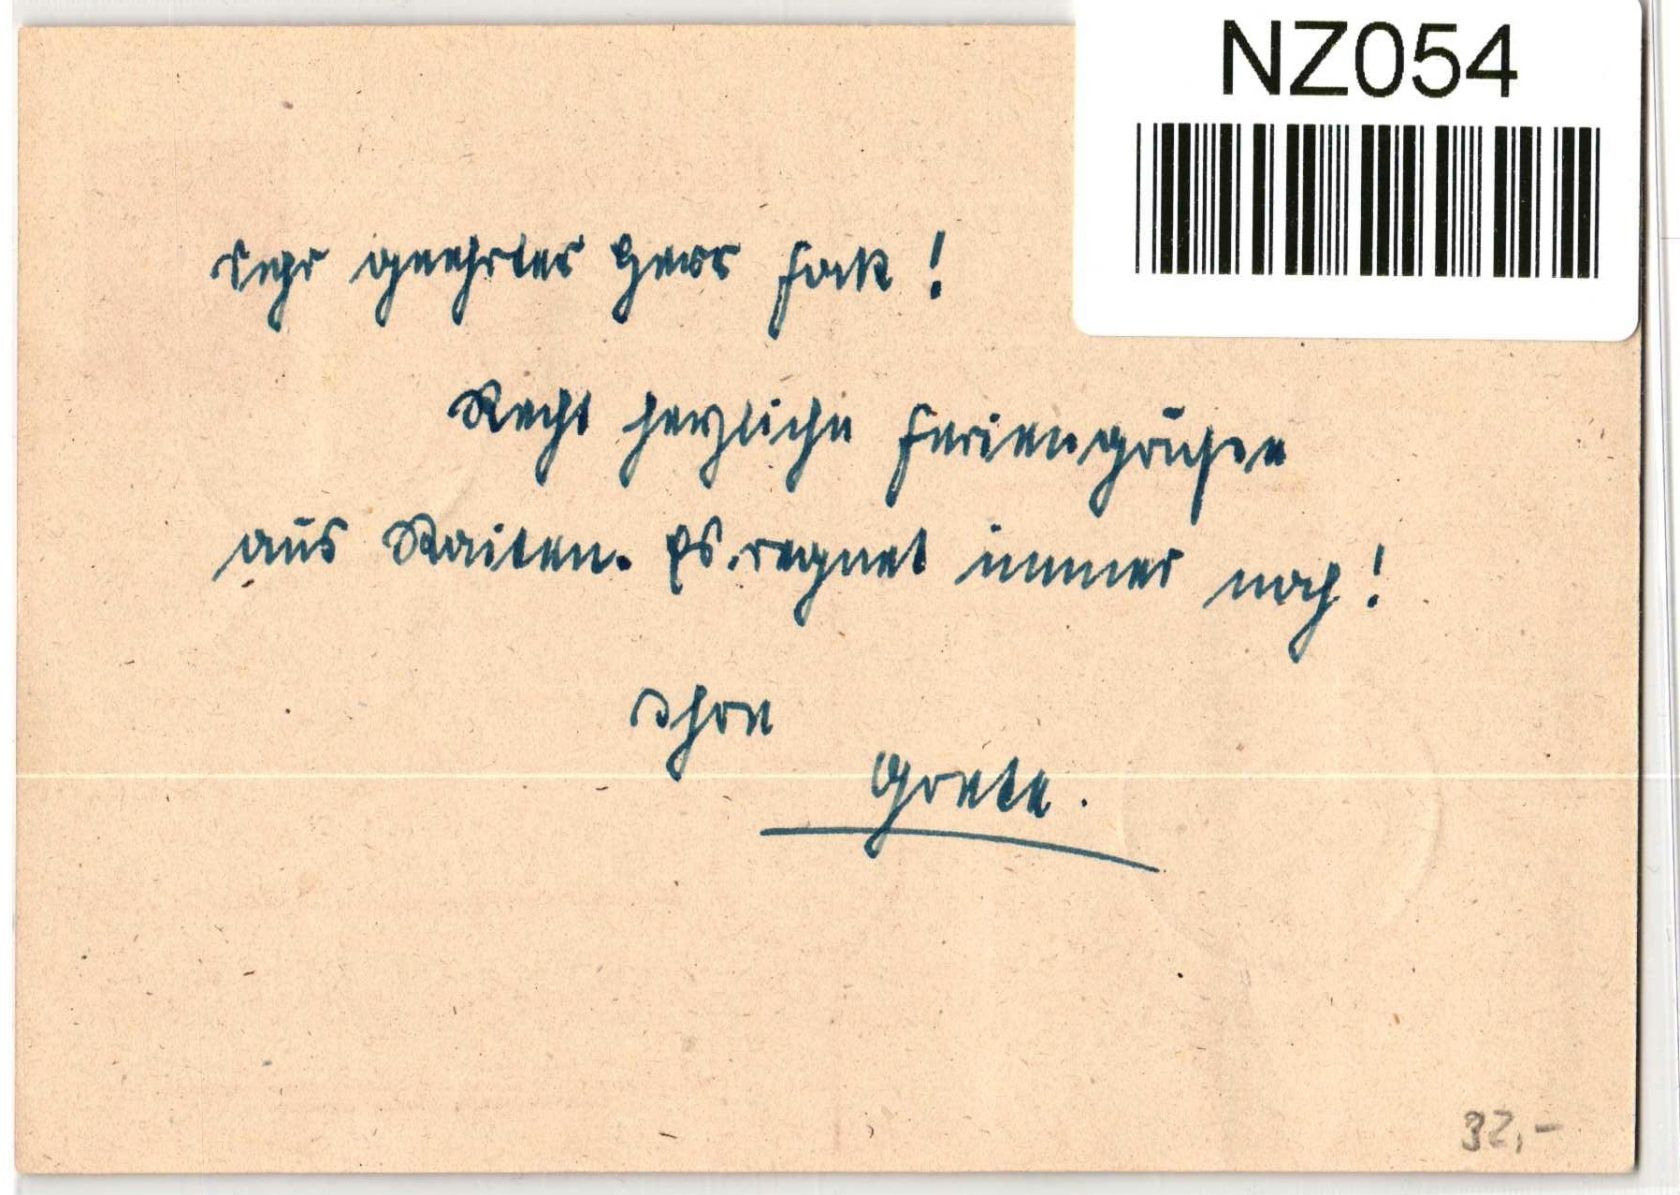 NZ054
Sehr geehrter Herr Fack!
Recht herzliche Feriengrüsse
aus Raiten. Es regnet immer noch!
Ihre
Grete.
32,-